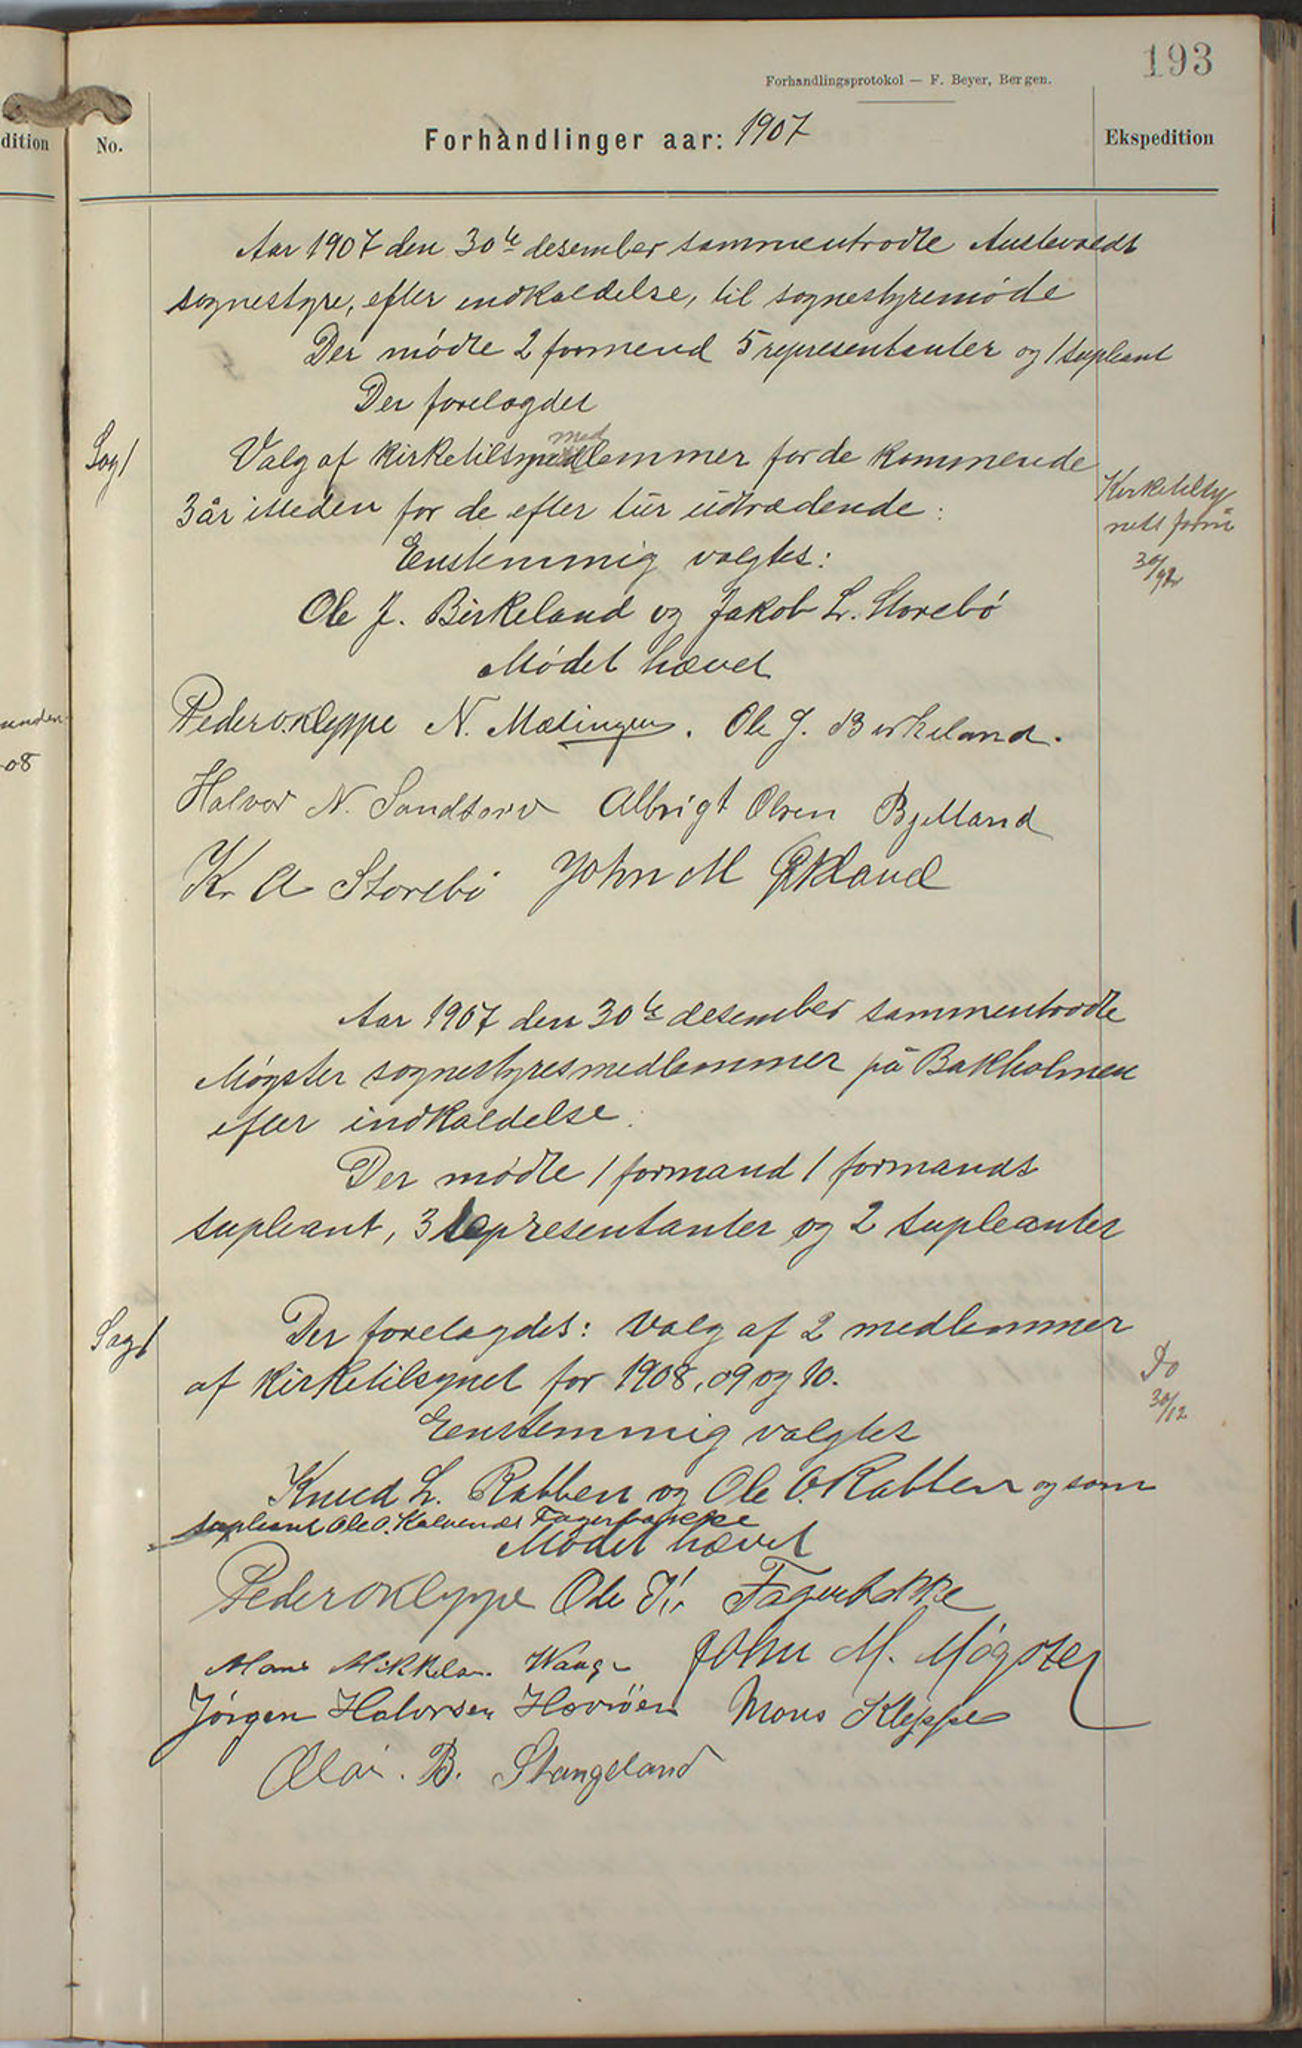 193
Forhandlingsprotokol — F. Beyer, Bergen.
dition
No.
Forhandlinger aar: 1907
Ekspedition
Aar 1907 den 30te desember sammentrodte Austevolds
sognestyre, efter indkaldelse, til sognestyremøde
Der mødte 2 formend 5 representanter og 1 supleant
Der forelagdes
Sag 1
Valg af kirketilsynsmedlemmer for de kommende
3 år isteden for de efter tur udtrædende:
Kirketilsy
nets form
30/12
Eenstemmig valgtes:
Ole J. Birkeland og Jakob L. Storebø
Mødet hævet
Peder O. Kleppe N. Møkingen. Ole J. Birkeland.
unden
08
Halvor N. Sandtorv Albrigt Olsen Bjelland
K. A Storebø John M Økland
Aar 1907 den 30te desember sammentrodte
Møgster sognestyresmedlemmer på Bakholmen
efter indkaldelse.
Der mødte 1 formand 1 formands
supleant, 3 representanter og 2 supleanter
Sag 1
Der forelagdes: Valg af 2 medlemmer
af kirketilsynet for 1908, 09 og 10.
Do
30/12
Eenstemmig valgtes
Knud L. Rabben og Ole O. Rabben og som
supleant Ole O. Kalvenes Fagerbakke
Mødet hævet
Peder O Kleppe Ole Kr. Fagerbakke
Mons Mikkelsen Waage John M. Møgster
Jørgen Halvorsen Horøen Mons Kleppe
Olai. B. Stangeland